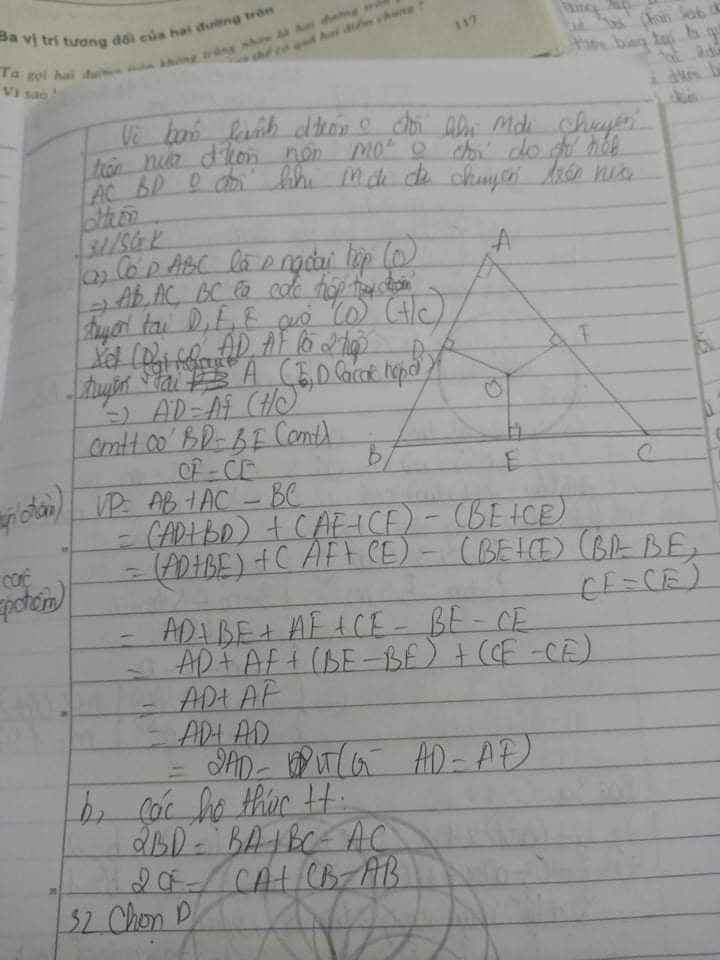 Ba vị trí tương đối của hai đường tròn
117
Ta gọi hai đường tròn không trùng nhau là hai đường tròn
Vì sao
Vì bán kính đtròn O đổi khi M di chuyển
trên nửa đtròn nên MO² O đổi do đó tích
AC BD O đổi khi M di chuyển trên nửa
đtròn
31/SGK
a, Có D ABC là D ngoại tiếp (O)
=> AB, AC, BC là các tiếp
tuyến tại D, F, E của (O) (t/c)
Xét (O) có AD, AF là 2 tiếp
tuyến tại A
=> AD = AF (t/c)
cmtt có BD = BE (cmt)
CF = CE
VP = AB + AC - BC
= (AD + BD) + (AF + CF) - (BE + CE)
= (AD + BE) + (AF + CE) - (BE + CE) (BD = BE,
CF = CE)
= AD + BE + AF + CE - BE - CE
= AD + AF + (BE - BE) + (CE - CE)
= AD + AF
= AD + AD
= 2AD = VT ( AD = AF)
b, Các hệ thức tt.
2BD = BA + BC - AC
2CF = CA + CB - AB
32 Chọn D
A
D
F
O
B
E
C